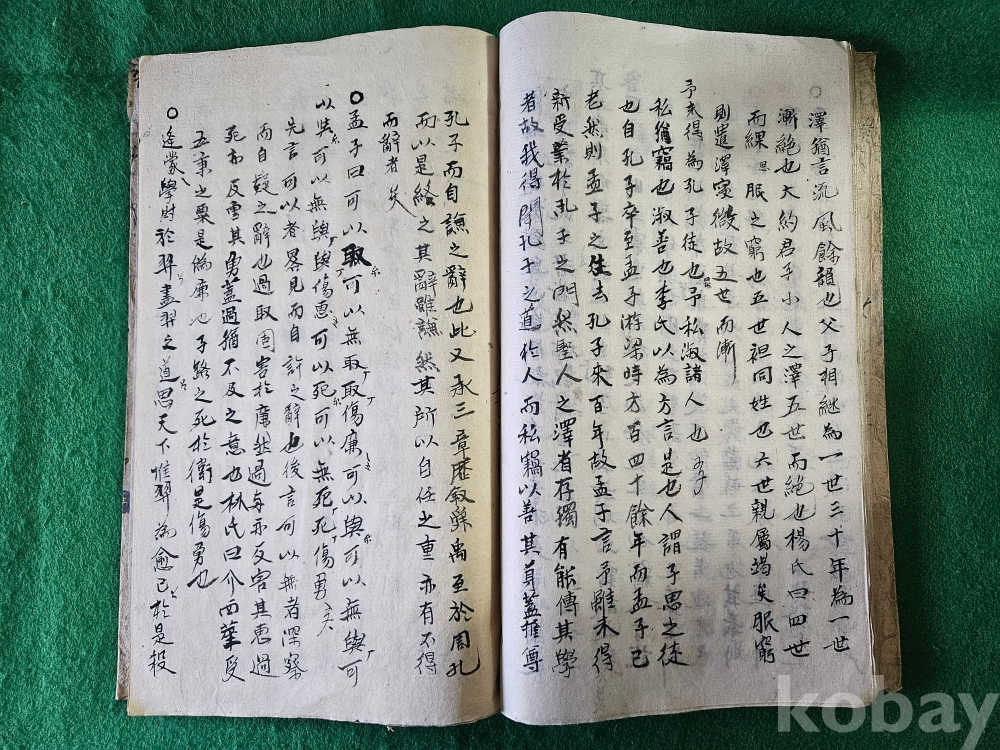 ○澤猶言流風餘韻也父子相繼為一世三十年為一世
漸絶也大約君子小人之澤五世而絶也楊氏曰四世
而緦思服之窮也五世袒同姓也六世親屬竭矣服窮
則遺澤寖微故五世而漸
予未得為孔子徒也予私淑諸人也
私猶竊也淑善也李氏以為方言是也人謂子思之徒
也自孔子卒至孟子游梁時方百四十餘年而孟子已
老然則孟子之生去孔子未百年故孟子言予雖未得
親受業於孔子之門然聖人之澤省存獨有能傳其學
者故我得聞孔子之道於人而私竊以善其身蓋推尊
孔子而自謙之辭也此又承三章歷叙舜禹至於周孔
而以是終之其辭雖謙然其所以自任之重亦有不得
而辭者矣
○孟子曰可以取可以無取取傷廉可以與可以無與可
以與可以無與與傷惠可以死可以無死死傷勇
先言可以者畧見而自許之辭也後言可以無者深察
而自疑之辭也過取固害於廉然過與亦反害其惠過
死亦反害其勇蓋過猶不及之意也林氏曰介西華受
五秉之粟是傷廉也子路之死於衛是傷勇也
○逄蒙學射於羿盡羿之道思天下惟羿為愈己於是殺
kobay